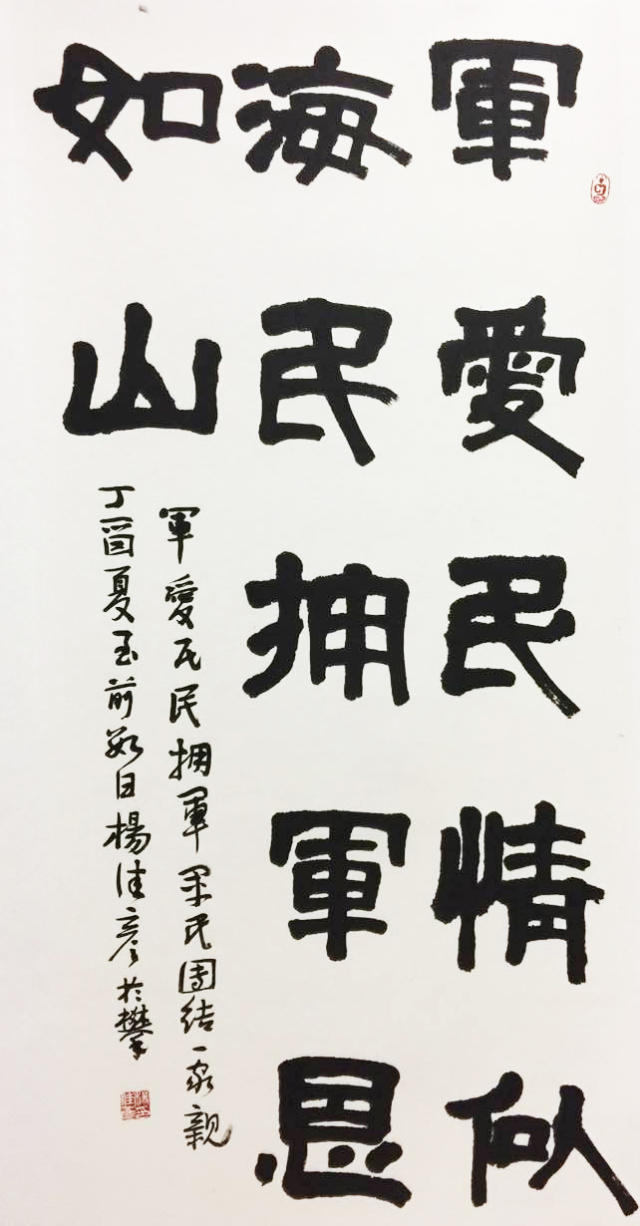 軍愛民情似
海民拥軍恩
如山
軍愛民民拥軍军民團結一家親
丁酉夏至前数日楊佳彦於攀